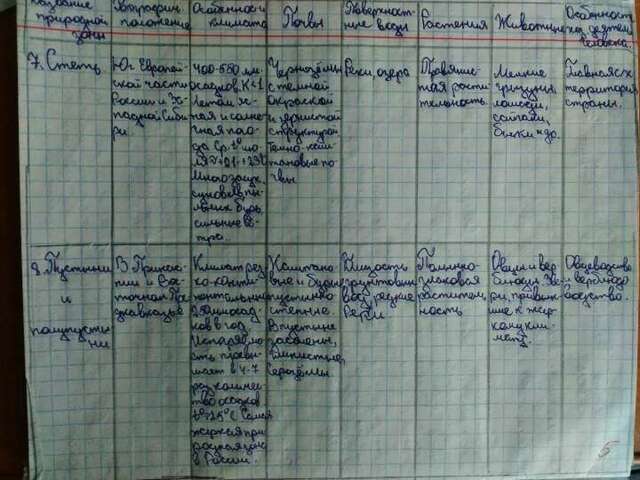 Название природной зоны
Географич. положение
Особенности климата
Почвы
Поверхностные воды
Растения
Животные
Особенности хоз. деятель. человека
7. Степь
Юг Европейской части России и Западной Сибири.
400-550 мм осадков. K<1
Летом ясная и солнечная погода
Чернозёмы с темной окраской и зернистой структурой
Темно-каштановые почвы
Реки, озера
Травянистая растительность.
Мелкие грызуны, лошади,
Главная с/х территория страны.
8. Пустыни и полупустыни
В Прикаспии и Восточном Предкавказье
Климат резко-континентальный
осадков в год.
Испаряемость превышает в 4-7 раз количество осадков
t°=25°C Самая жаркая природная зона в России.
Каштановые и бурые пустынно-степные.
В пустыне
Серозёмы.
Близость грунтовых вод, редкие реки.
Полынно-злаковая растительность
Овцы и верблюды. Звери, привыкшие к жаркому климату.
Овцеводство и верблюдоводство.
5